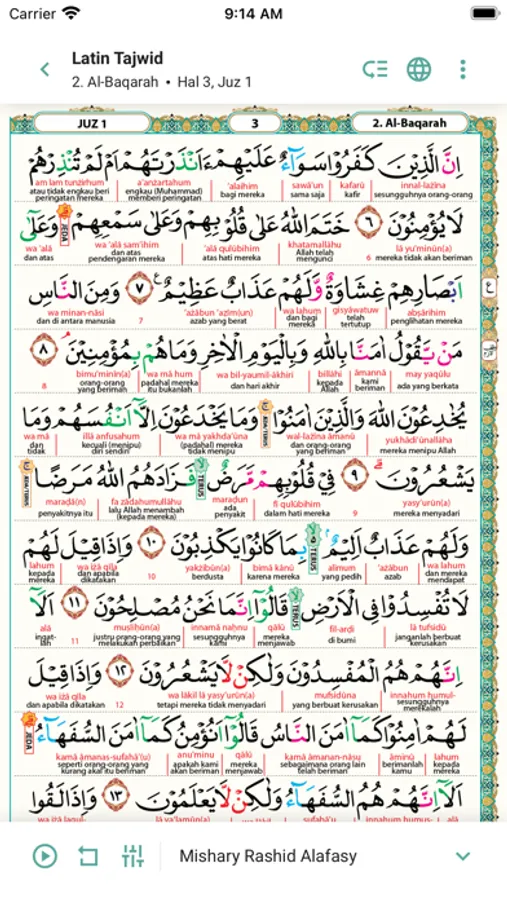 Carrier 9:14 AM
Latin Tajwid
2. Al-Baqarah • Hal 3, Juz 1
JUZ 1 3 2. Al-Baqarah
اِنَّ الَّذِيْنَ كَفَرُوْا سَوَاۤءٌ عَلَيْهِمْ ءَاَنْذَرْتَهُمْ اَمْ لَمْ تُنْذِرْهُمْ
innal-lażīna kafarū sawā'un 'alaihim a'anżartahum am lam tunżirhum
sesungguhnya orang-orang kafir sama saja bagi mereka engkau (Muhammad) memberi peringatan atau tidak engkau beri peringatan mereka
لَا يُؤْمِنُوْنَ ٦ خَتَمَ اللّٰهُ عَلٰى قُلُوْبِهِمْ وَعَلٰى سَمْعِهِمْ ۗ وَعَلٰٓى
JEDA
lā yu'minūn(a) 6 khatamallāhu 'alā qulūbihim wa 'alā sam'ihim wa 'alā
mereka tidak akan beriman Allah telah mengunci atas hati mereka dan atas pendengaran mereka dan atas
اَبْصَارِهِمْ غِشَاوَةٌ وَّلَهُمْ عَذَابٌ عَظِيْمٌ ٧ وَمِنَ النَّاسِ
ع
abṣārihim gisyāwatuw wa lahum 'ażābun 'aẓīm(un) 7 wa minan-nāsi
penglihatan mereka telah tertutup dan bagi mereka azab yang berat dan di antara manusia
مَنْ يَّقُوْلُ اٰمَنَّا بِاللّٰهِ وَبِالْيَوْمِ الْاٰخِرِ وَمَا هُمْ بِمُؤْمِنِيْنَ ۘ ٨
may yaqūlu āmannā billāhi wa bil-yaumil-ākhiri wa mā hum bimu'minīn(a) 8
ada yang berkata kami beriman kepada Allah dan hari akhir padahal mereka itu bukanlah orang-orang yang beriman
يُخٰدِعُوْنَ اللّٰهَ وَالَّذِيْنَ اٰمَنُوْا ۚ وَمَا يَخْدَعُوْنَ اِلَّآ اَنْفُسَهُمْ وَمَا
yukhādi'ūnallāha wal-lażīna āmanū wa mā yakhda'ūna illā anfusahum wa mā
mereka menipu Allah dan orang-orang yang beriman (padahal) mereka tidak menipu kecuali (menipu) diri sendiri dan tidak
يَشْعُرُوْنَ ۗ ٩ فِيْ قُلُوْبِهِمْ مَّرَضٌ ۙ فَزَادَهُمُ اللّٰهُ مَرَضًا ۚ
TERUS
yasy'urūn(a) 9 fī qulūbihim maraḍun fa zādahumullāhu maraḍā(n)
mereka menyadari dalam hati mereka ada penyakit lalu Allah menambah (kepada mereka) penyakitnya itu
وَلَهُمْ عَذَابٌ اَلِيْمٌ ۢ ەۙ بِمَا كَانُوْا يَكْذِبُوْنَ ١٠ وَاِذَا قِيْلَ لَهُمْ
TERUS
wa lahum 'ażābun alīmum bimā kānū yakżibūn(a) 10 wa iżā qīla lahum
dan mereka mendapat azab yang pedih karena mereka berdusta dan apabila dikatakan kepada mereka
لَا تُفْسِدُوْا فِى الْاَرْضِ ۙ قَالُوْٓا اِنَّمَا نَحْنُ مُصْلِحُوْنَ ١١ اَلَآ
TERUS
lā tufsidū fil-arḍi qālū innamā naḥnu muṣliḥūn(a) 11 alā
janganlah berbuat kerusakan di bumi mereka menjawab sesungguhnya kami justru orang-orang yang melakukan perbaikan ingat-lah
اِنَّهُمْ هُمُ الْمُفْسِدُوْنَ وَلٰكِنْ لَّا يَشْعُرُوْنَ ١٢ وَاِذَا قِيْلَ
innahum humul- mufsidūna wa lākil lā yasy'urūn(a) 12 wa iżā qīla
sesungguhnya merekalah yang berbuat kerusakan tetapi mereka tidak menyadari dan apabila dikatakan
لَهُمْ اٰمِنُوْا كَمَآ اٰمَنَ النَّاسُ قَالُوْٓا اَنُؤْمِنُ كَمَآ اٰمَنَ السُّفَهَاۤءُ ۗ
JEDA
lahum āminū kamā āmanan-nāsu qālū anu'minu kamā āmanas-sufahā'(u)
kepada mereka berimanlah kamu sebagaimana orang lain telah beriman mereka menjawab apakah kami akan beriman seperti orang-orang yang kurang akal itu beriman
اَلَآ اِنَّهُمْ هُمُ السُّفَهَاۤءُ وَلٰكِنْ لَّا يَعْلَمُوْنَ ١٣ وَاِذَا لَقُوا
Mishary Rashid Alafasy